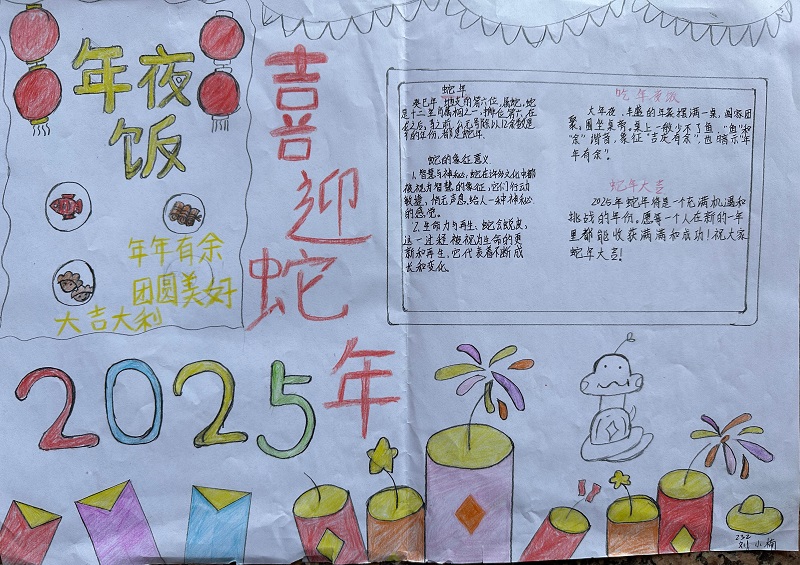 年夜
饭
年年有余
团圆美好
大吉大利
喜
迎
蛇
年
2025
蛇年
癸巳年,地支的第六位,属蛇,蛇
是十二生肖属相之一,排位第六,在
公元后,
的年份,都是蛇年。
蛇的象征意义
1.智慧与神秘:蛇在许多文化中都
被视为智慧的象征,它们行动
敏捷,悄无声息,给人一种神秘
的感觉。
2.生命力与再生:蛇会蜕皮,
这一过程被视为生命的更
新和再生,它代表着不断成
长和变化。
吃年夜饭
大年夜,丰盛的年菜摆满一桌,阖家团
聚,围坐桌旁。桌上一般少不了鱼,“鱼”和
“余”谐音,象征“吉庆有余”,也暗示“年
年有余”。
蛇年大吉
2025年蛇年将是一个充满机遇和
挑战的年份。愿每一个人在新的一年
里都能收获满满和成功!祝大家
蛇年大吉!
232
刘小楠